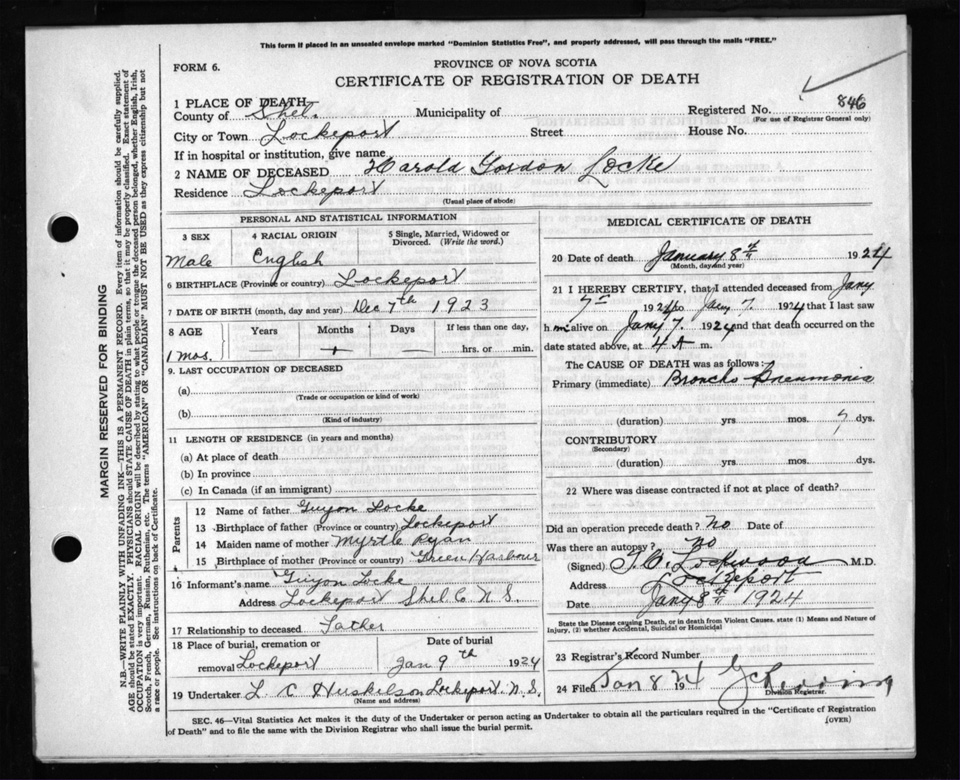 This form if placed in an unsealed envelope marked "Dominion Statistics Free", and properly addressed, will pass through the mails "FREE."
FORM 6.
PROVINCE OF NOVA SCOTIA
CERTIFICATE OF REGISTRATION OF DEATH
1 PLACE OF DEATH
County of Shel. Municipality of Registered No. 846
(For use of Registrar General only)
City or Town Lockeport Street House No.
If in hospital or institution, give name
2 NAME OF DECEASED Harold Gordon Locke
Residence Lockeport
(Usual place of abode)
PERSONAL AND STATISTICAL INFORMATION
3 SEX 4 RACIAL ORIGIN 5 Single, Married, Widowed or Divorced. (Write the word.)
Male English
6 BIRTHPLACE (Province or country) Lockeport
7 DATE OF BIRTH (month, day and year) Dec 7th 1923
8 AGE Years Months Days If less than one day,
1 mos. 1 hrs. or min.
9. LAST OCCUPATION OF DECEASED
(a)
(Trade or occupation or kind of work)
(b)
(Kind of industry)
11 LENGTH OF RESIDENCE (in years and months)
(a) At place of death
(b) In province
(c) In Canada (if an immigrant)
Parents
12 Name of father Guyon Locke
13 Birthplace of father (Province or country) Lockeport
14 Maiden name of mother Myrtle Ryan
15 Birthplace of mother (Province or country) Green Harbour
16 Informant's name Guyon Locke
Address Lockeport Shel Co. N.S.
17 Relationship to deceased Father
18 Place of burial, cremation or removal Lockeport Date of burial Jan 9th 1924
19 Undertaker L. C. Huskilson Lockeport. N.S.
(Name and address)
MEDICAL CERTIFICATE OF DEATH
20 Date of death January 8th 1924
(Month, day and year)
21 I HEREBY CERTIFY, that I attended deceased from Jany
7th 1924 to Jany 7. 1924 that I last saw
h im alive on Jany 7. 1924 and that death occurred on the
date stated above, at 4 A m.
The CAUSE OF DEATH was as follows:
Primary (immediate) Broncho-Pneumonia
(duration) yrs mos. 7 dys.
CONTRIBUTORY
(Secondary)
(duration) yrs. mos. dys.
22 Where was disease contracted if not at place of death?
Did an operation precede death? No Date of
Was there an autopsy? No
(Signed) Lockwood M.D.
Address Lockeport
Date Jany 8th 1924
State the Disease causing Death, or in death from Violent Causes, state (1) Means and Nature of Injury, (2) whether Accidental, Suicidal or Homicidal
23 Registrar's Record Number
24 Filed Jan 8 1924
Division Registrar.
SEC. 46—Vital Statistics Act makes it the duty of the Undertaker or person acting as Undertaker to obtain all the particulars required in the "Certificate of Registration of Death" and to file the same with the Division Registrar who shall issue the burial permit.
(OVER)
MARGIN RESERVED FOR BINDING
N.B.—WRITE PLAINLY WITH UNFADING INK—THIS IS A PERMANENT RECORD. Every item of information should be carefully supplied.
AGE should be stated EXACTLY. PHYSICIANS should STATE CAUSE OF DEATH in plain terms, so that it may be properly classified. Exact statement of
OCCUPATION is very important. RACIAL ORIGIN will be described by stating to what people or tongue the deceased person belonged, whether English, Irish,
Scotch, French, German, Russian, Ruthenian, etc. The terms "AMERICAN" or "CANADIAN" MUST NOT BE USED as they express citizenship but not
a race or people. See instructions on back of Certificate.